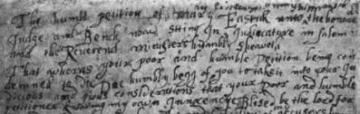 The humbl petition of mary Eastick unto the honou
Judge and Bench now Siting In Judicature in Salem
and the Reverend ministers humbly sheweth
That wheras your poor and humble Petition being con
demned to die Doe humbly begg of you to take it into your Ju
dicious and pious considerations that your Poor and humble
petitioner knowing my own Innocencye Blised be the lord for